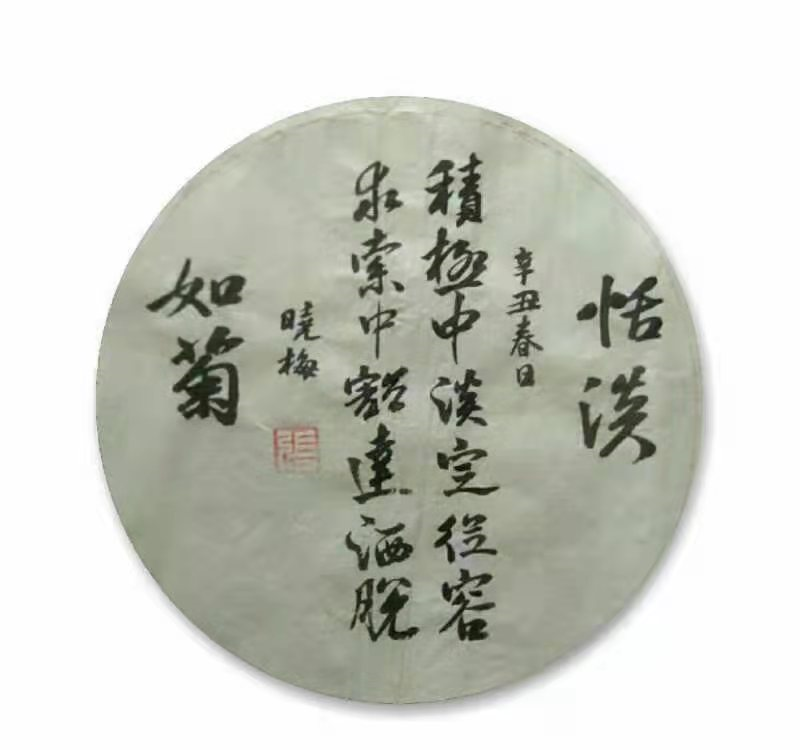 恬淡
辛丑春日
積極中淡定從容
求索中豁達洒脫
曉梅
如菊